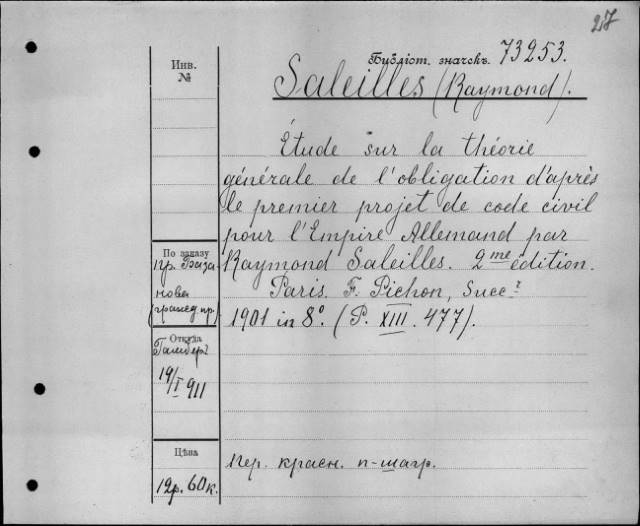 27
Библіот. значекъ 73253.
Инв.
№
Saleilles (Raymond).
Étude sur la théorie
générale de l'obligation d'après
le premier projet de code civil
pour l'Empire Allemand par
Raymond Saleilles. 2me édition.
Paris. F. Pichon, Succr
1901 in 8°. (P. XIII. 477).
По заказу
пр. База-
нова
(гражд. пр.)
Откуда
19/I 911
Цѣна
12р. 60к.
Пер. красн. п-шагр.